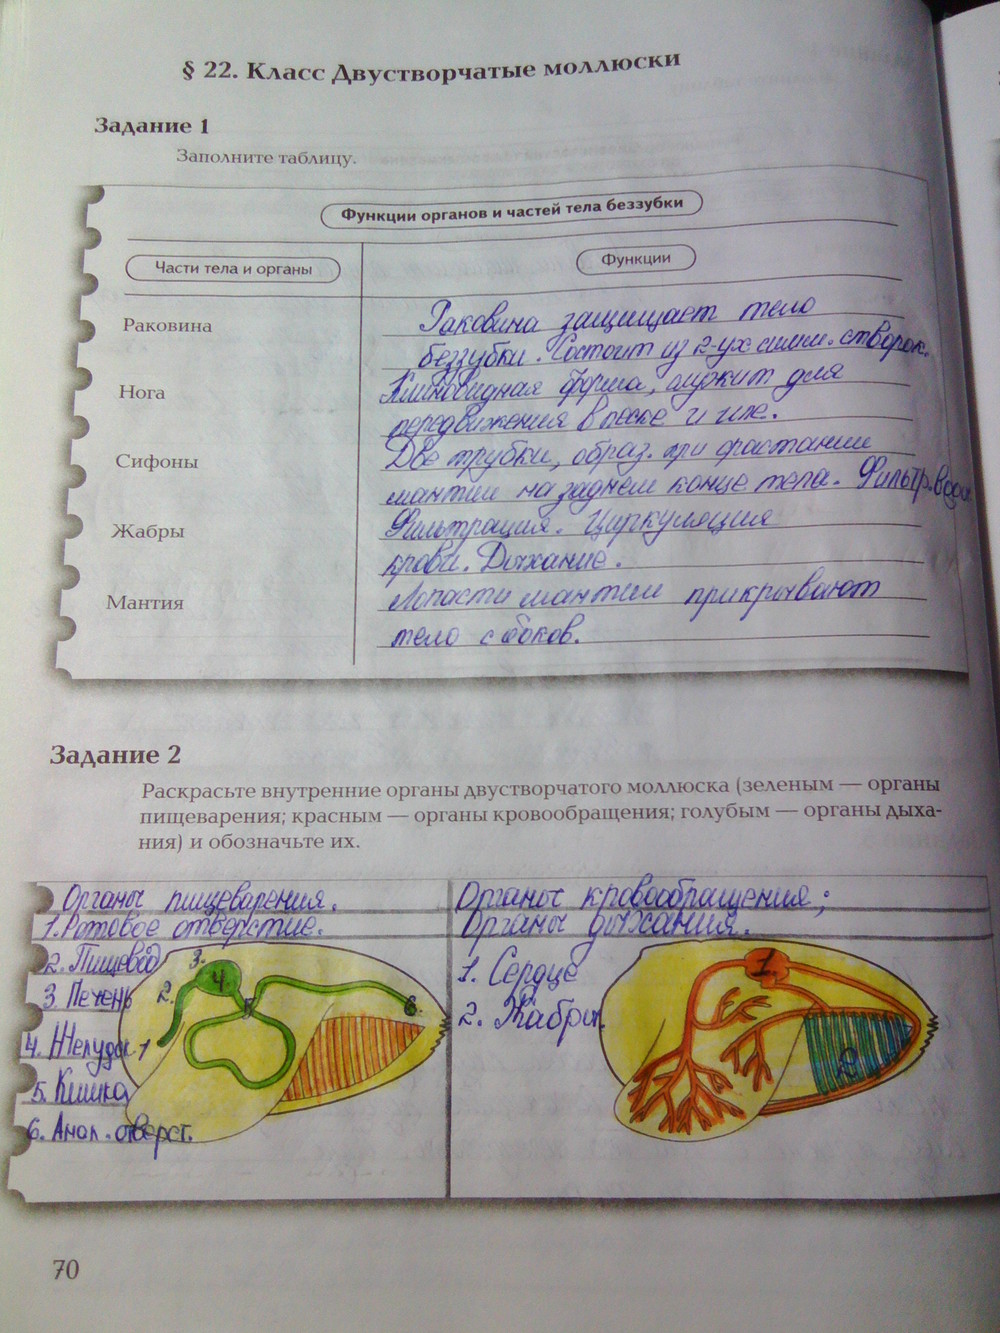 § 22. Класс Двустворчатые моллюски
Задание 1
Заполните таблицу.
Функции органов и частей тела беззубки
Части тела и органы
Функции
Раковина
Раковина защищает тело
беззубки. Состоит из 2-ух симм. створок.
Нога
Клиновидная форма, служит для
передвижения в песке и иле.
Сифоны
Две трубки, образ. при срастании
мантии на заднем конце тела. Фильтр. воды
Жабры
Фильтрация. Циркуляция
крови. Дыхание.
Мантия
Лопасти мантии прикрывают
тело с боков.
Задание 2
Раскрасьте внутренние органы двустворчатого моллюска (зеленым — органы
пищеварения; красным — органы кровообращения; голубым — органы дыха-
ния) и обозначьте их.
Органы пищеварения.
1. Ротовое отверстие.
2. Пищевод
3. Печень
4. Желудок
5. Кишка
6. Анал. отверст.
1
2.
3.
4
5
6.
Органы кровообращения;
Органы дыхания.
1. Сердце
2. Жабры.
1.
2
70